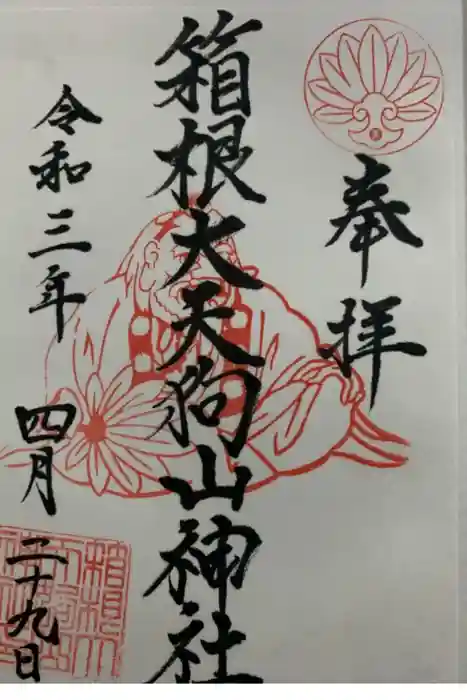 奉拝
箱根大天狗山神社
令和三年
四月二十九日